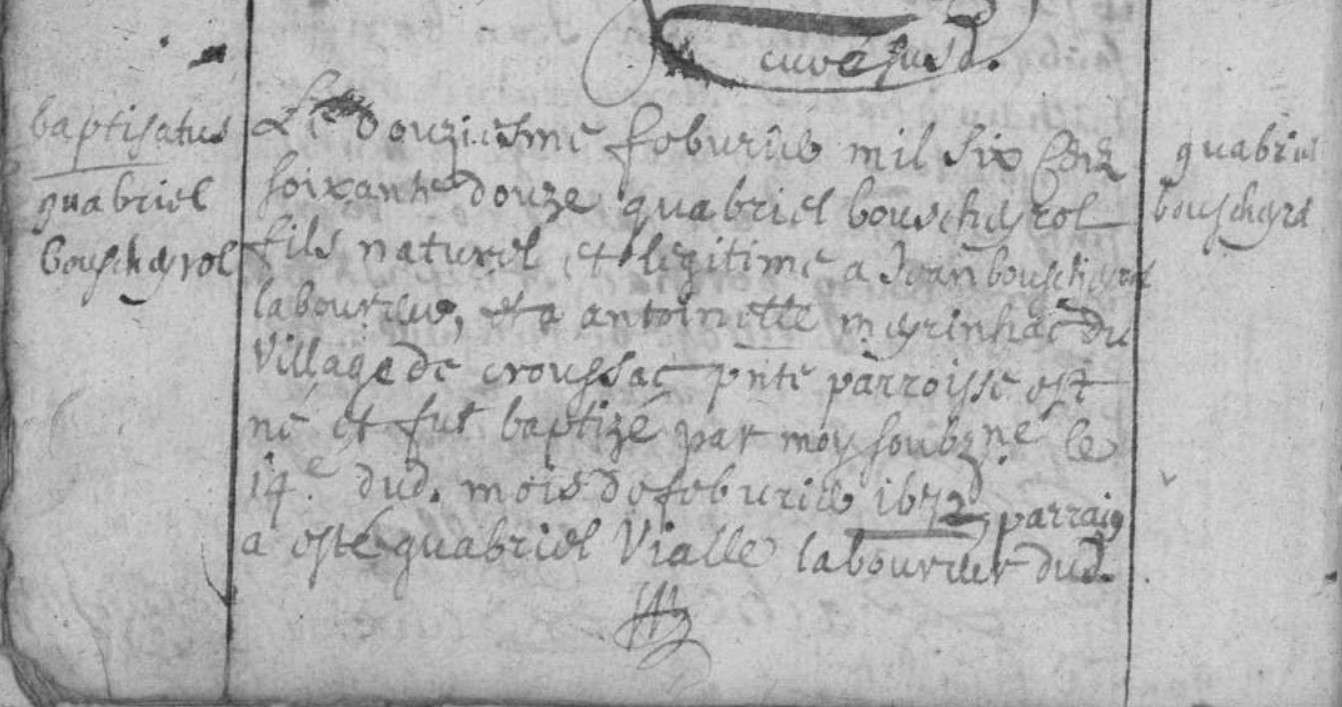 curé susd.
baptisatus
quabriel
bouscheyrol
Le douziesme feburier mil six cens
soixante douze quabriel bouscheyrol
fils naturel et legitime a Jean bouscheyrol
laboureur, et a antoinette meyrinhac du
Village de croussac pnte parroisse est
né et fut baptizé par moy soubzne le
14e dud. mois de feburier 1672, parraig
a esté quabriel Vialle laboureur dud.
quabriel
bouscheyrol